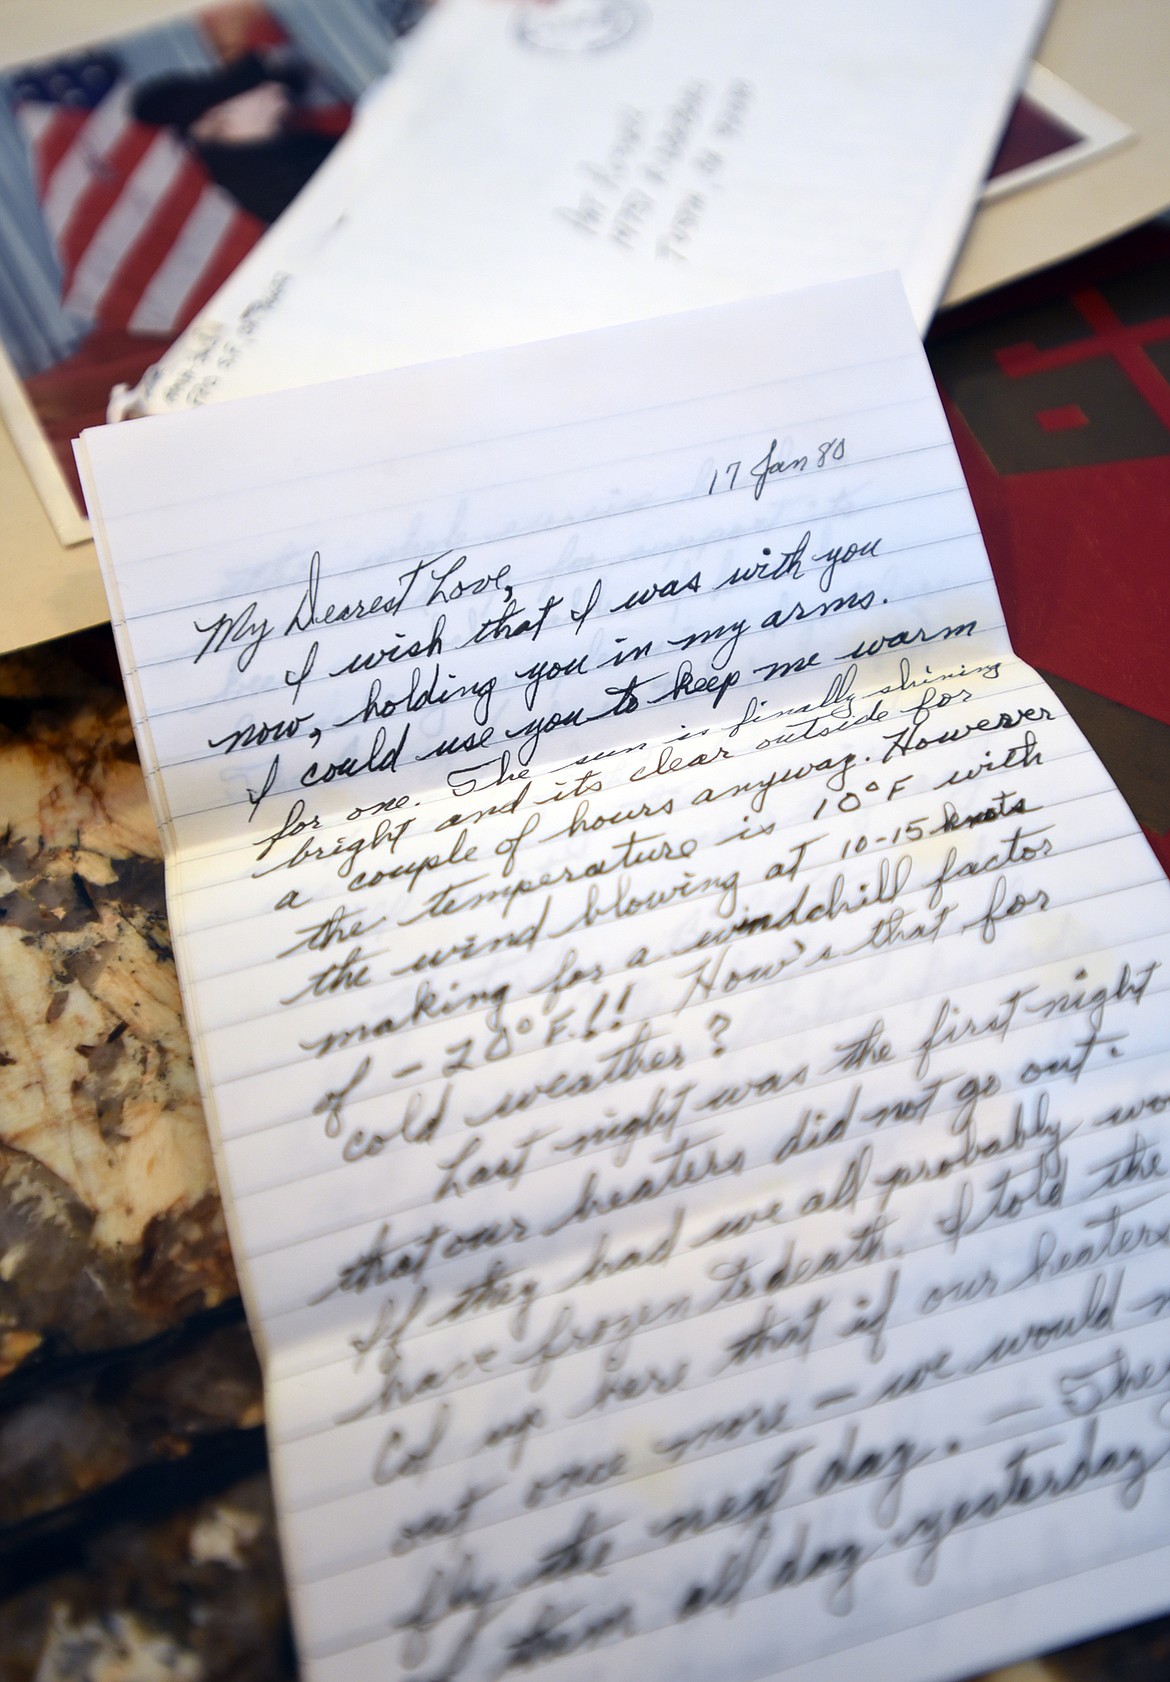 17 Jan 80
My Dearest Love,
I wish that I was with you
now, holding you in my arms.
I could use you to keep me warm
for one. The sun is finally shining
bright and its clear outside for
a couple of hours anyway. However
the temperature is 10°F with
the wind blowing at 10-15 knots
making for a windchill factor
of - 20°F.!! How's that for
cold weather?
Last night was the first night
that our heaters did not go out.
If they had we all probably
have frozen to death. I told the
up here that if our heaters
out once more — we would
fly the next day. — The
all day yesterday